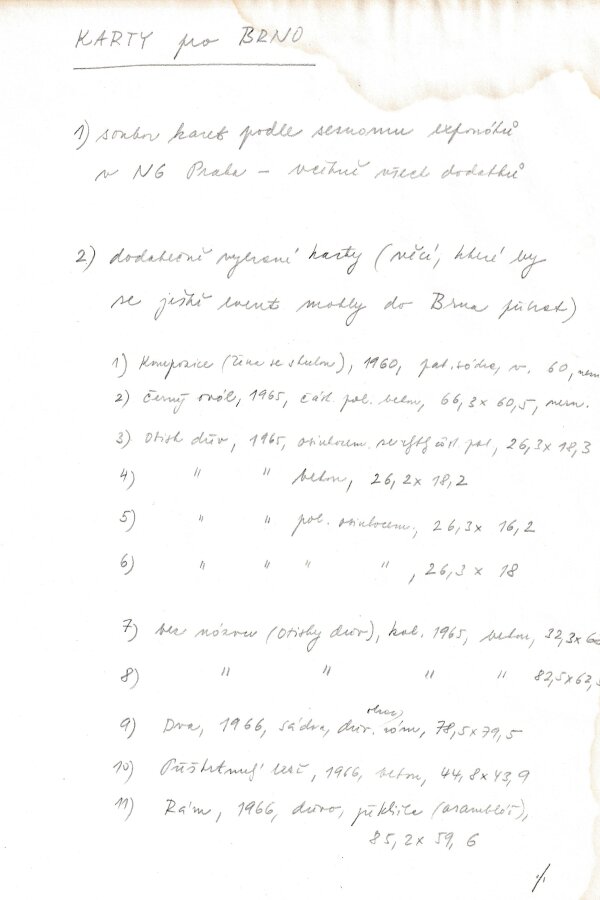 KARTY pro BRNO
1) soubor karet podle seznamu exponátů
v NG Praha – včetně všech dodatků
2) dodatečně vybrané karty (věcí, které by
se ještě event mohly do Brna půjčit)
1) Kompozice (Žena se), 1960, pat. sádra, v. 60,
2) Černý ovál, 1965, část. pol. beton, 66,3 x 60,5, nezn.
3) Otisk dřev, 1965, osinkocem. část pol, 26,3 x 18,3
4) " " beton, 26,2 x 18,2
5) " " pol. osinkocem., 26,3 x 16,2
6) " " " " , 26,3 x 18
7) bez názvu (Otisky dřev), kol. 1965, beton, 32,3 x
8) " " " " 82,5 x 62,5
9) Dva, 1966, sádra, dřev. rám, 78,5 x 79,5
10) 1966, beton, 44,8 x 43,9
11) Rám, 1966, dřevo, (asambláž),
85,2 x 59,6
./.